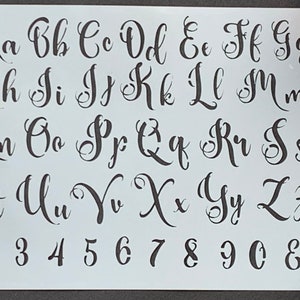 a Bb Cc Dd Ee Ff G
h Ii Jj Kk Ll Mm
n Oo Pp Qq Rr S
t Uu Vv Xx Yy Z
3 4 5 6 7 8 9 0 &